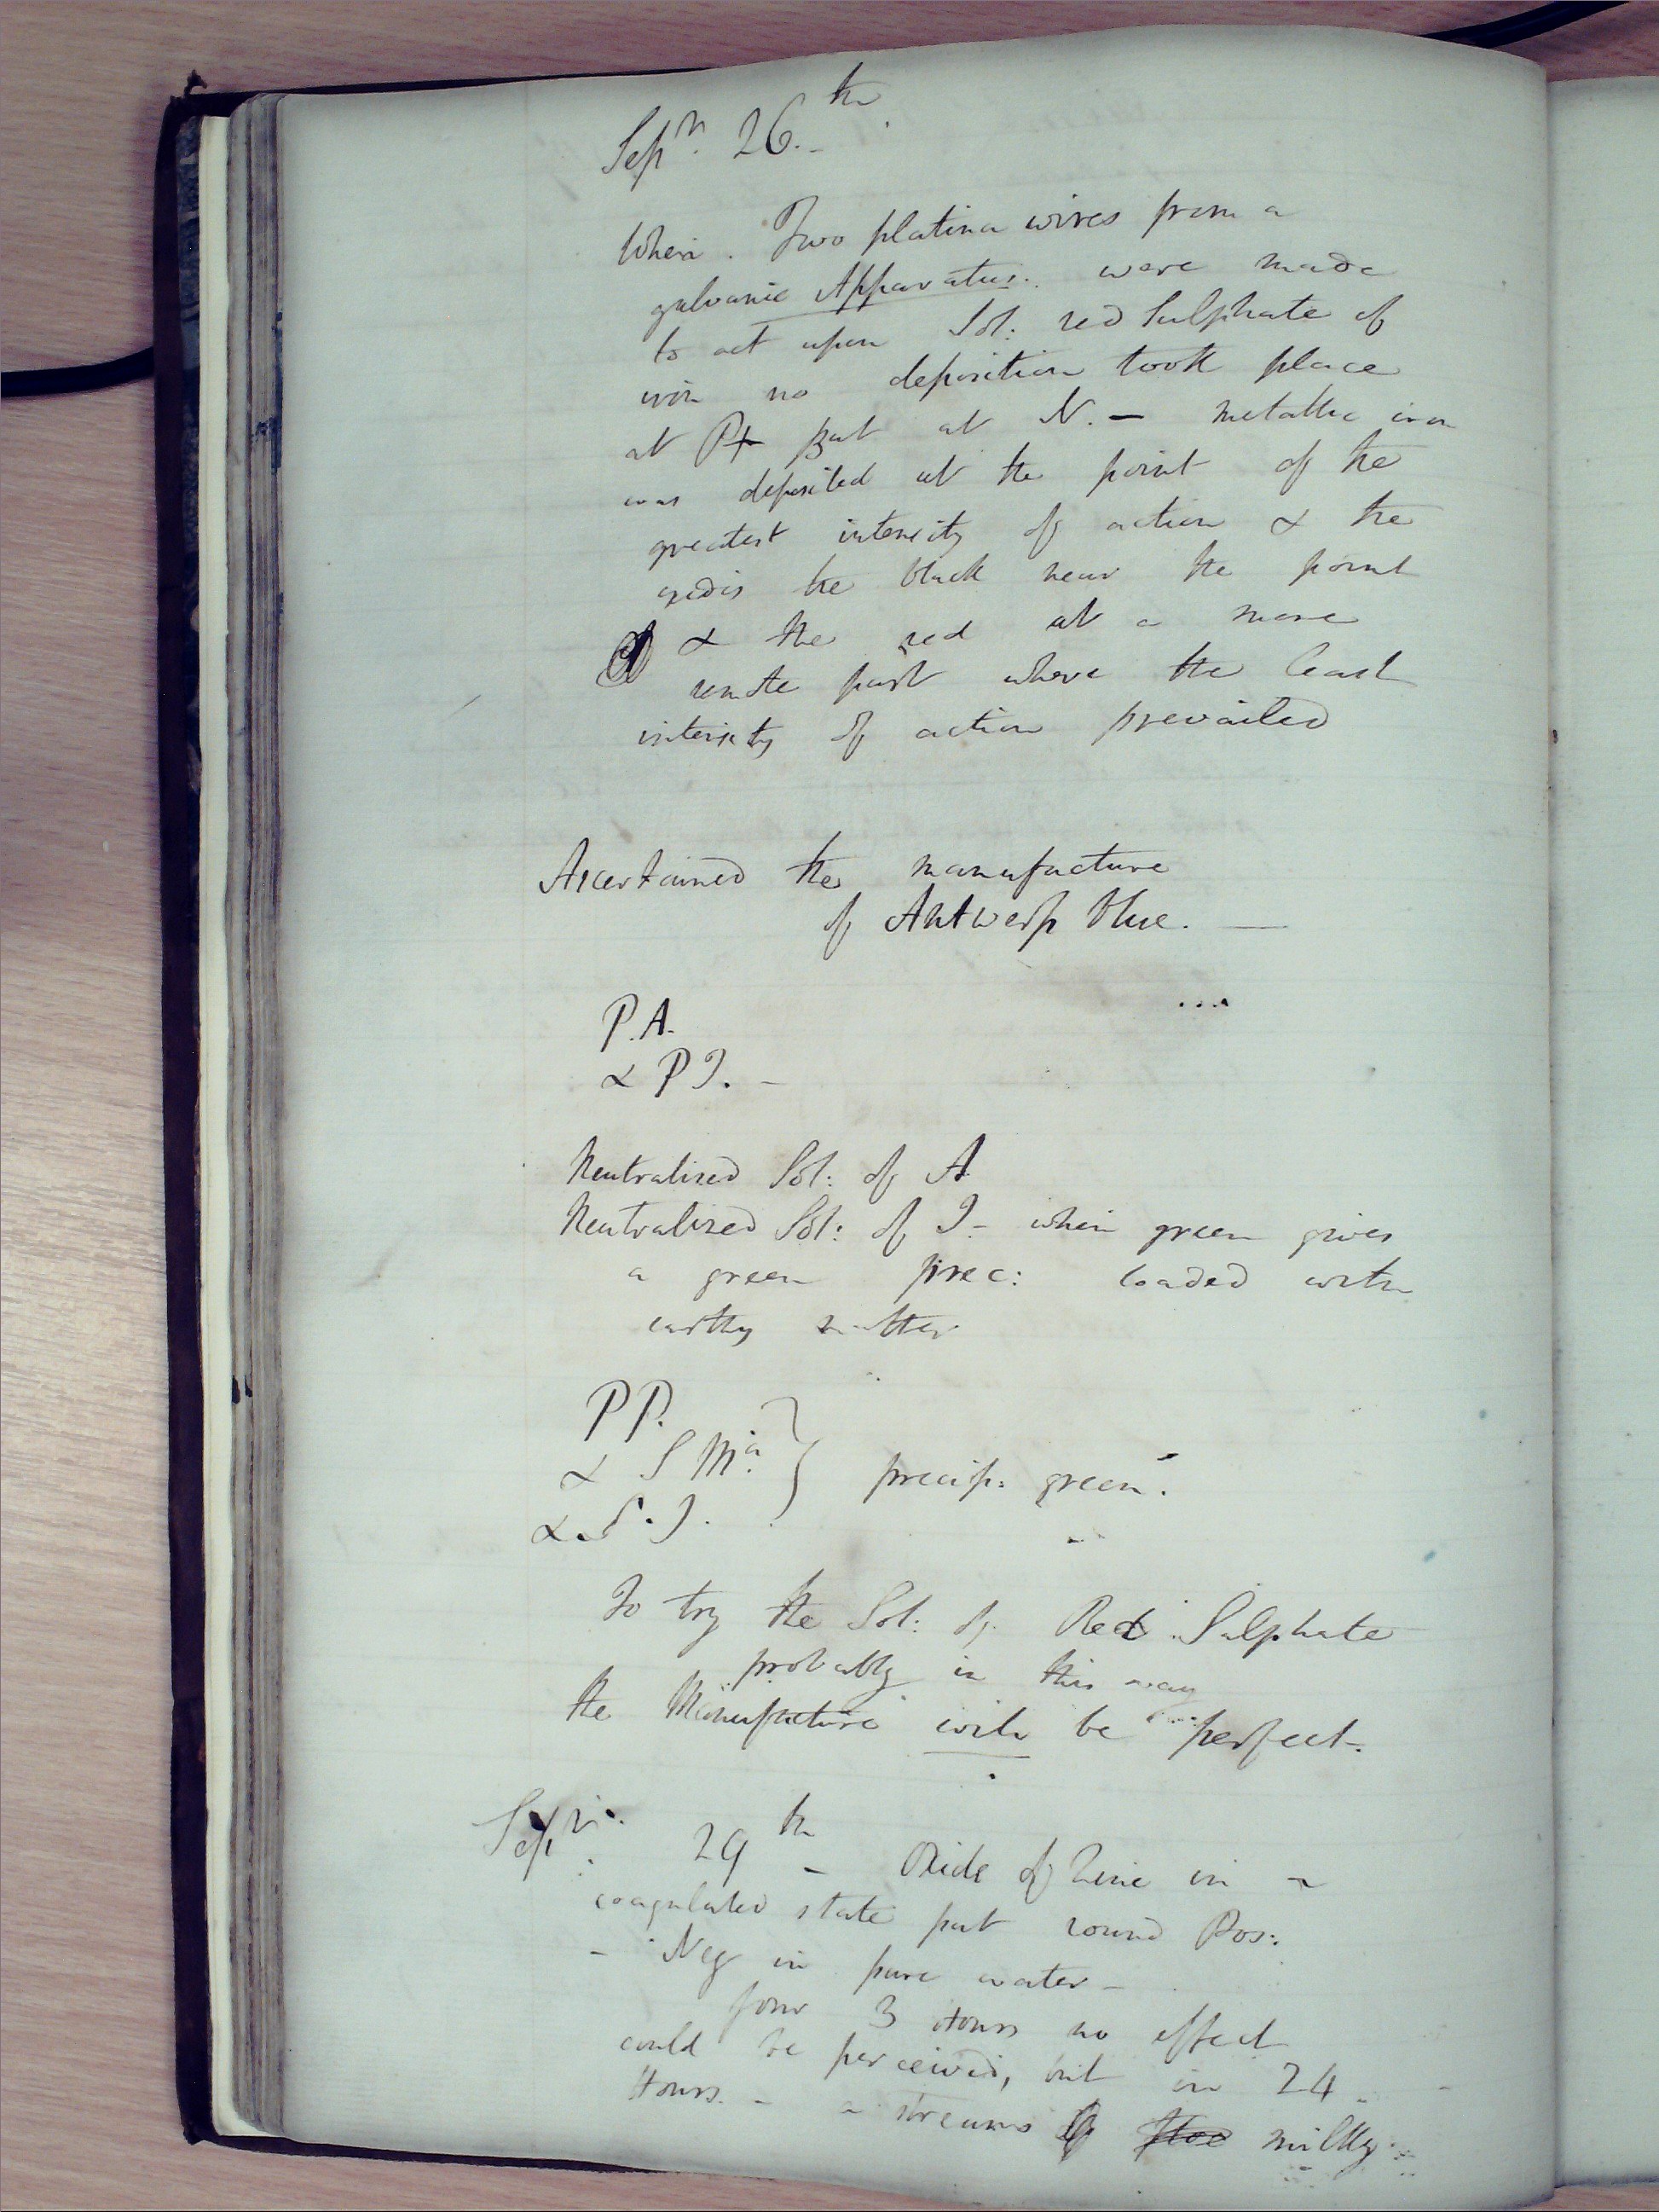 Sepr. 26.th
When. Two platina wires from a
galvanic Apparatus. were made
to act upon Sol: red Sulphate of
iron no deposition took place
at P+ But at N. - metallic iron
was deposited at the point of the
greatest intensity of action & the
oxides the black near the point
& the red at a more
remote part where the least
intensity of action prevailed
Ascertained the manufacture
of Antwerp blue. —
P.A.
& P I. -
Neutralized Sol: of A
Neutralized Sol: of I - when green gives
a green prec: loaded with
earthy matter
P P.
& S Ma. } precip: green.
& S. I.
To try the Sol: of Red Sulphate
probably in this way
the Manufacture will be perfect.
Sepr. 29th - Oxide of Zinc in a
coagulated state put round Pos:
- Neg in pure water -
for 3 Hours no effect
could be perceived, but in 24
Hours. - a streams milky